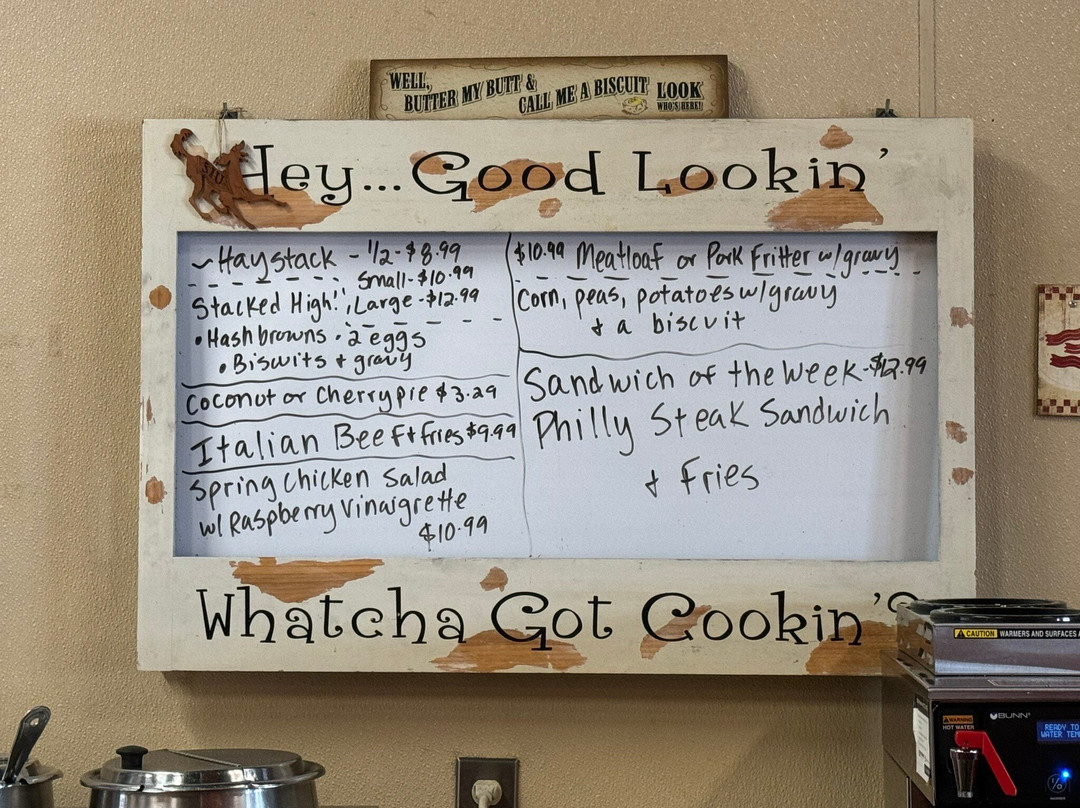 WELL,
BUTTER MY BUTT &
CALL ME A BISCUIT
LOOK
WHO'S HERE!
Hey... Good Lookin'
SIU
~ Haystack - 1/2 - $8.99
Small - $10.99
Stacked High! Large - $12.99
• Hashbrowns • 2 eggs
• Biscuits & gravy
Coconut or Cherry pie $3.29
Italian Beef & fries $9.99
Spring chicken Salad
w/ Raspberry Vinaigrette
$10.99
$10.99 Meatloaf or Pork Fritter w/gravy
Corn, peas, potatoes w/gravy
& a biscuit
Sandwich of the Week - $12.99
Philly Steak Sandwich
& Fries
Whatcha Got Cookin'?
CAUTION WARMERS AND SURFACES
WARNING
HOT WATER
BUNN
READY TO
WATER TEM